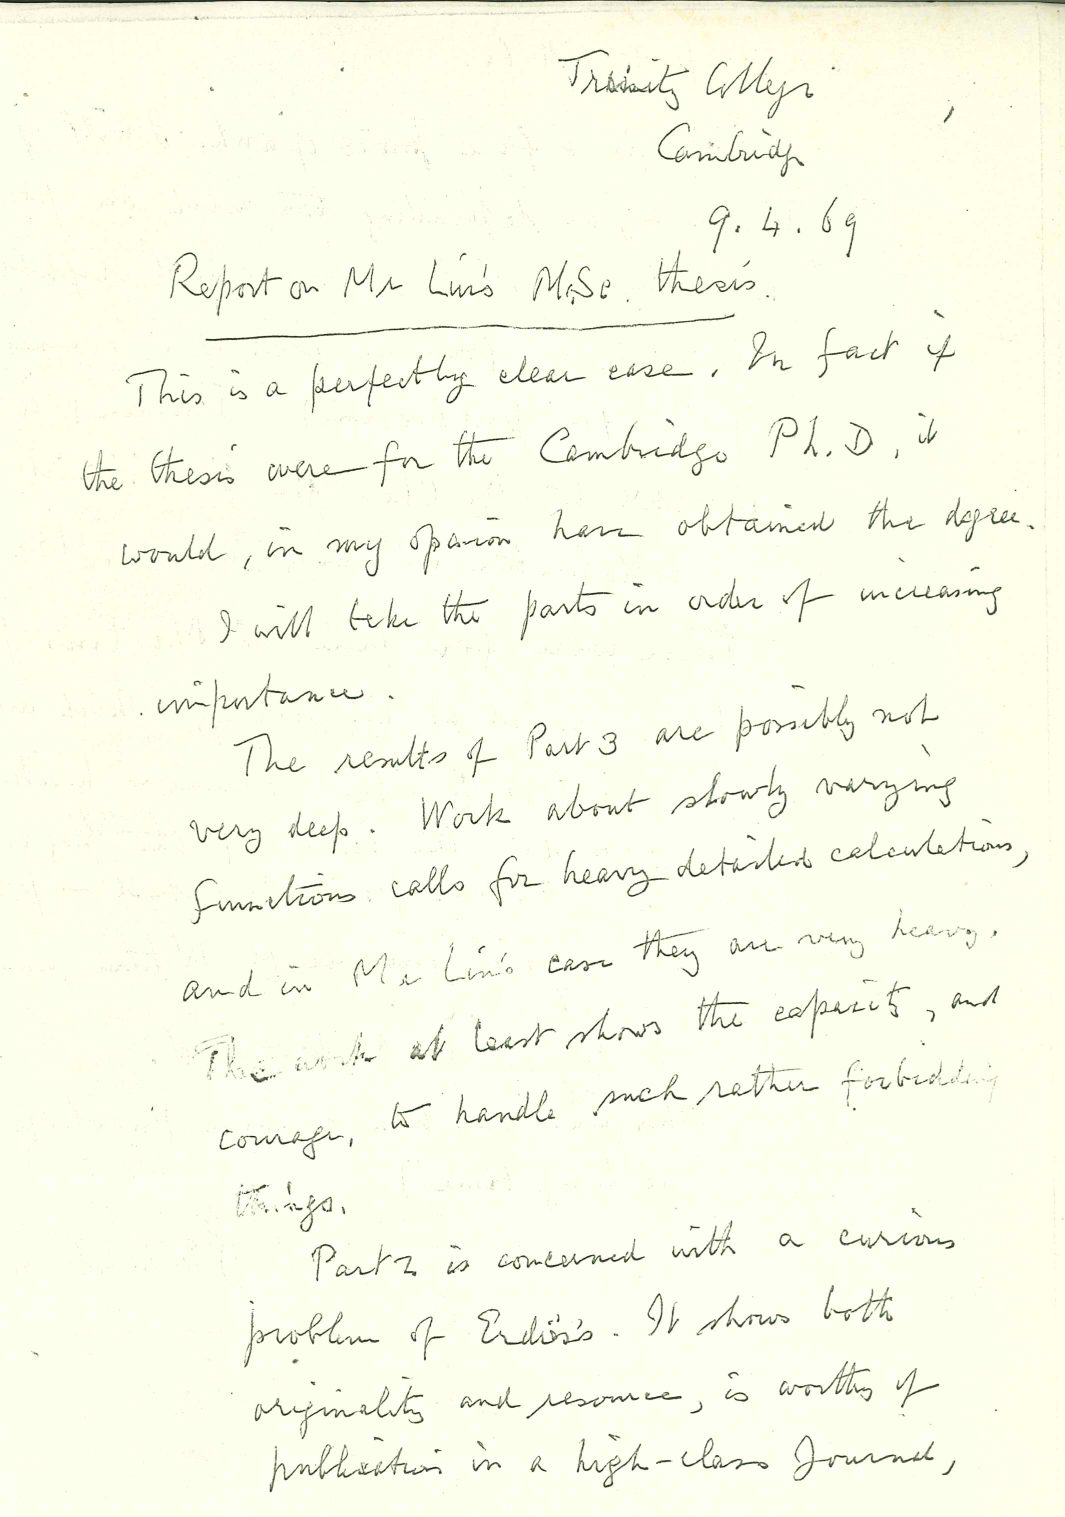 Trinity College
Cambridge
9.4.69
Report on Mr Lin's M.Sc. thesis.
This is a perfectly clear case. In fact if
the thesis were for the Cambridge Ph.D, it
would, in my opinion have obtained the degree.
I will take the parts in order of increasing
importance.
The results of Part 3 are possibly not
very deep. Work about slowly varying
functions calls for heavy detailed calculations,
and in Mr Lin's case they are very heavy.
The work at least shows the capacity, and
courage, to handle such rather forbidding
things.
Part 2 is concerned with a curious
problem of Erdös's. It shows both
originality and resource, is worthy of
publication in a high-class Journal,